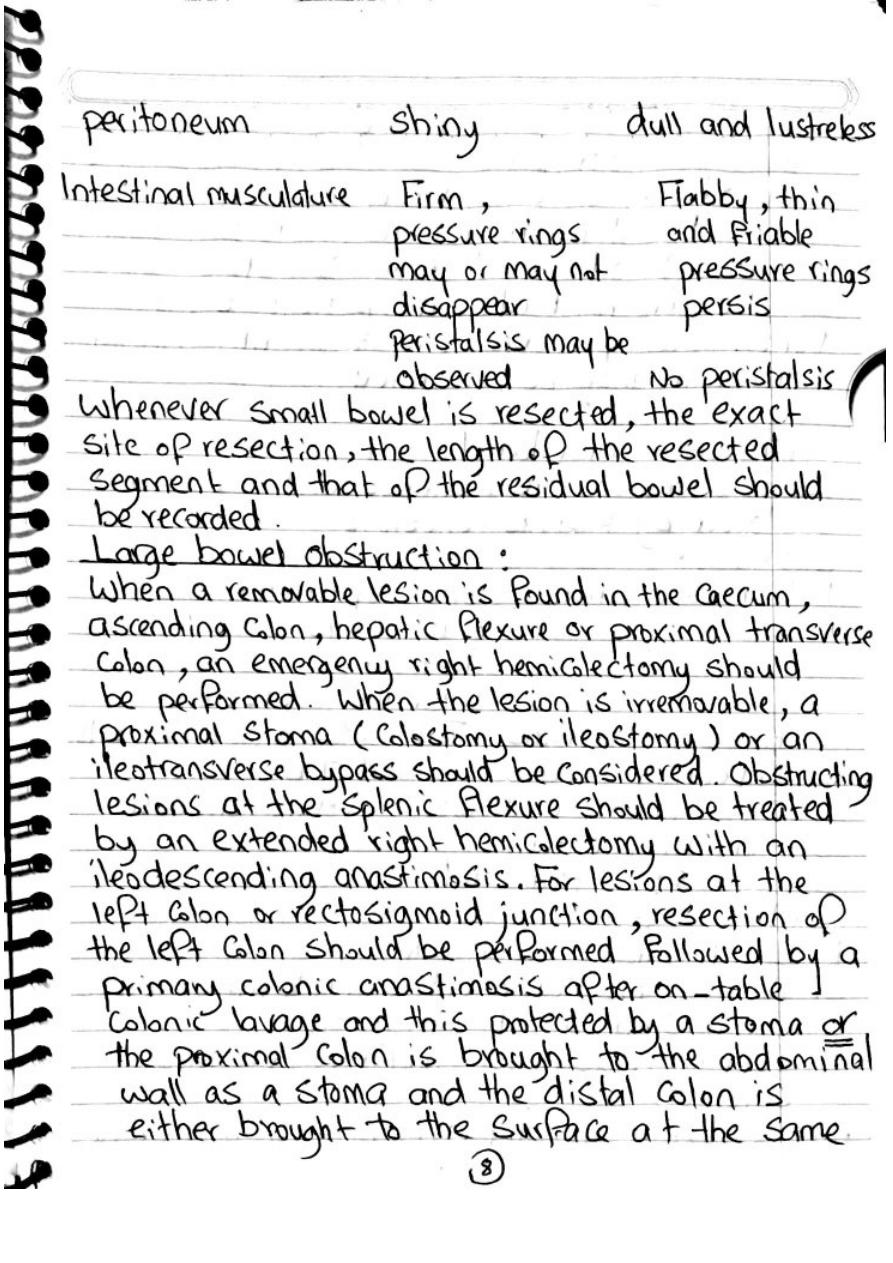 peritoneum shiny dull and lustreless
Intestinal musculature Firm, Flabby, thin
pressure rings and friable
may or may not pressure rings
disappear persis
peristalsis may be
observed No peristalsis
Whenever small bowel is resected, the exact
site of resection, the length of the resected
segment and that of the residual bowel should
be recorded.
Large bowel obstruction:
When a removable lesion is found in the caecum,
ascending colon, hepatic flexure or proximal transverse
colon, an emergency right hemicolectomy should
be performed. When the lesion is irremovable, a
proximal stoma (colostomy or ileostomy) or an
ileotransverse bypass should be considered. Obstructing
lesions at the splenic flexure should be treated
by an extended right hemicolectomy with an
ileodescending anastimosis. For lesions at the
left colon or rectosigmoid junction, resection of
the left colon should be performed followed by a
primary colonic anastimosis after on-table
colonic lavage and this protected by a stoma or
the proximal colon is brought to the abdominal
wall as a stoma and the distal colon is
either brought to the surface at the same
8